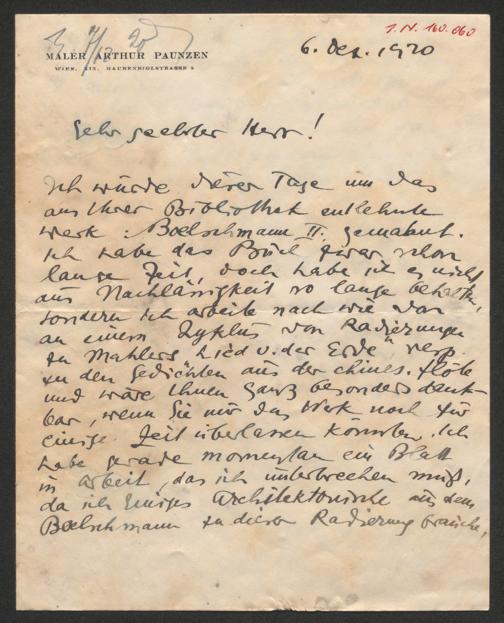 7/12 20
I. N. 160.060
MALER ARTHUR PAUNZEN
WIEN, XIX. HAUBENBIGLSTRASSE 8
6. Dez. 1920
Sehr geehrter Herr!
Ich würde dieser Tage um das
aus Ihrer Bibliothek entlehnte
Werk: Boelschmann II. gemahnt.
Ich habe das Buch zwar schon
lange Zeit, doch habe ich es nicht
aus Nachlässigkeit so lange behalten,
sondern ich arbeite nach wie vor
an einem Zyklus von Radierungen
zu Mahlers „Lied v. der Erde" resp.
zu den Gedichten aus der chines. Flöte
und wäre Ihnen ganz besonders dank-
bar, wenn Sie mir das Werk noch für
einige Zeit überlassen könnten. Ich
habe gerade momentan ein Blatt
in Arbeit, das ich unterbrechen muß,
da ich Einiges Architektonische aus dem
Boelschmann zu dieser Radierung brauche.